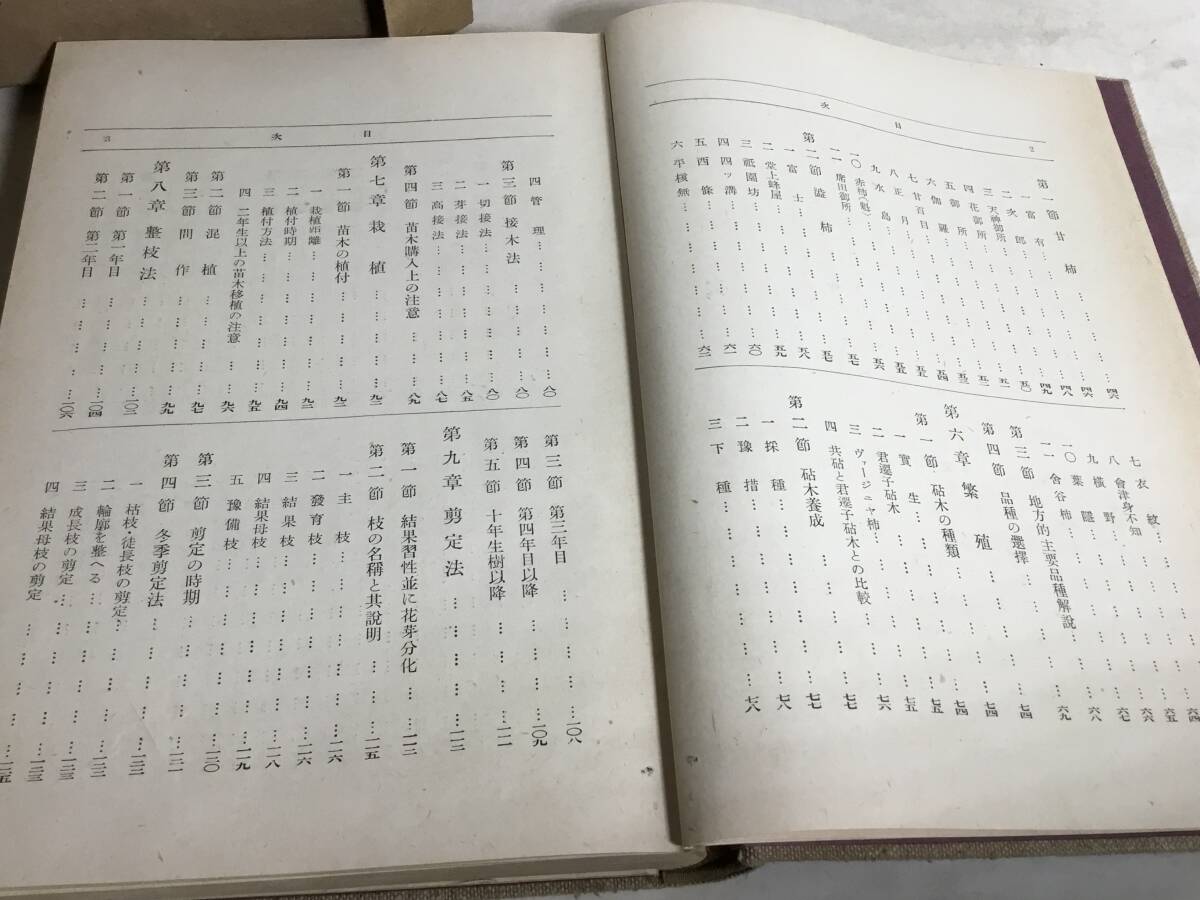 目次
2
第一節 甘柿……四六
一 富有……四六
二 次郎……四八
三 天神御所……四九
四 花御所……五〇
五 御所……五一
六 伽羅……五二
七 甘百目……五三
八 正月……五四
九 水島……五五
一〇 赤柿(魁)……五五
一一 席田御所……五六
第二節 澁柿……五七
一 富士……五七
二 堂上蜂屋……五八
三 祗園坊……五九
四 四ッ溝……六〇
五 西條……六一
六 平核無……六二
七 衣紋……六四
八 會津身不知……六五
八 橫野……六六
九 葉隱……六七
一〇 會谷柿……六八
第三節 地方的主要品種解說……六九
第四節 品種の選擇……七四
第六章 繁殖……七四
第一節 砧木の種類……七四
一 實生……七五
二 君遷子砧木……七五
三 ヴァージニヤ柿……七六
四 共砧と君遷子砧木との比較……七七
第二節 砧木養成……七七
一 採種……七八
二 豫措……七八
三 下種
目次
3
四 管理……八〇
第三節 接木法……八〇
一 切接法……八〇
二 芽接法……八五
三 高接法……八七
第四節 苗木購入上の注意……八九
第七章 栽植……九二
第一節 苗木の植付……九二
一 栽植距離……九二
二 植付時期……九四
三 植付方法……九五
四 二年生以上の苗木移植の注意……九六
第二節 混植……九六
第三節 間作……九七
第八章 整枝法……九九
第一節 第一年目……一〇二
第二節 第二年目……一〇四
第三節 第三年目……一〇八
第四節 第四年目以降……一〇九
第五節 十年生樹以降……一一一
第九章 剪定法……一一二
第一節 結果習性並に花芽分化……一一三
第二節 枝の名稱と其說明……一一五
一 主枝……一一六
二 發育枝……一一六
三 結果枝……一一八
四 結果母枝……一一九
五 豫備枝……一二〇
第三節 剪定の時期……一二〇
第四節 冬季剪定法……一二一
一 枯枝・徒長枝の剪定……一二二
二 輪廓を整へる……一二三
三 成長枝の剪定……一二三
四 結果母枝の剪定……一二五